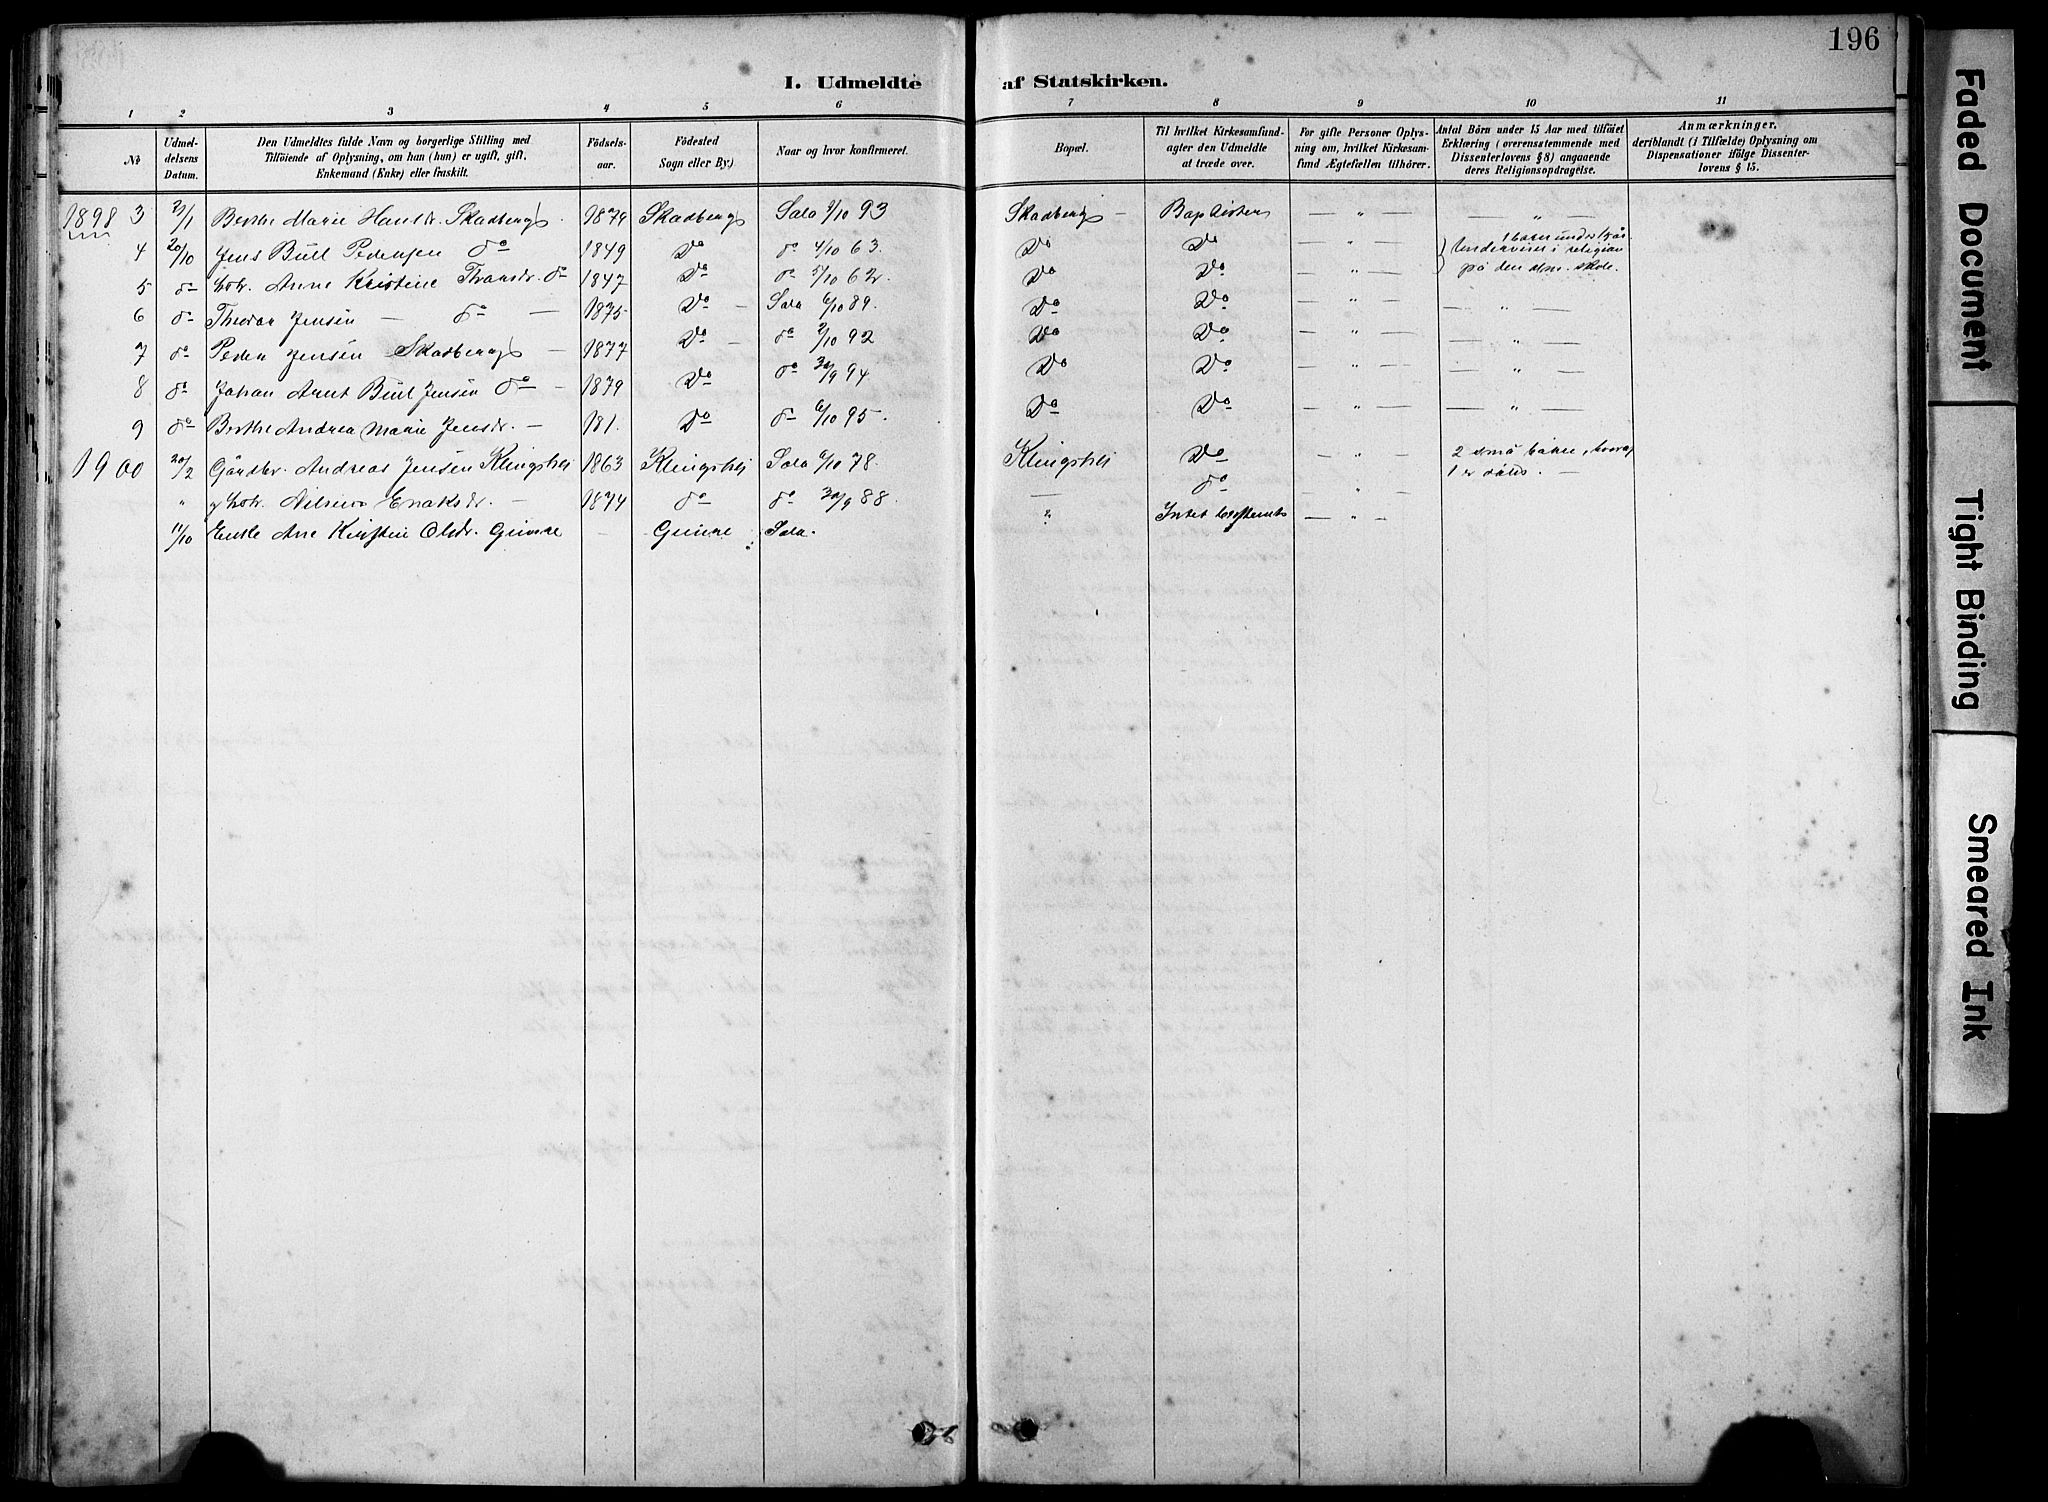 196
I. Udmeldte af Statskirken.
1 2 3 4 5 6 7 8 9 10 11
No
Udmeldelsens Datum.
Den Udmeldtes fulde Navn og borgerlige Stilling med
Tilföiende af Oplysning, om han (hun) er ugift, gift,
Enkemand (Enke) eller fraskilt.
Födselsaar.
Födested
Sogn eller By.)
Naar og hvor konfirmeret.
Bopæl.
Til hvilket Kirkesamfund
agter den Udmeldte
at træde over.
For gifte Personer Oplysning
om, hvilket Kirkesamfund
Ægtefællen tilhörer.
Antal Börn under 15 Aar med tilföiet
Erklæring (overensstemmende med
Dissenterlovens § 8) angaaende
deres Religionsopdragelse.
Anmærkninger,
deriblandt (i Tilfælde) Oplysning om
Dispensationer ifölge Dissenterlovens
§ 15.
1898 3 Berthe Marie Hansdr. Skadberg 1879 Skadberg Sola 1/10 93 Skadberg — Baptisterne — " — — " —
4 20/10 Jens Bull Pedersen do 1849 Do do 4/10 63. Do Do — " — 1 barn under 15 år. Undervises i religion på den alm. skole.
5 do Anne Kristine do 1847 Do do 5/10 62. Do Do — " —
6 do Theodor Jensen — do — 1875 Do — Sola 6/10 89. Do Do — " — — " —
7 do Peder Jensen Skadberg — 1877 Do — do 2/10 92 Do Do — " — — " —
8 do Johan Arnt Bull Jensen do — 1879 Do do 30/9 94 Do Do — " — — " —
9 do Berthe Andrea Marie Jensdr. — 181. Do do 6/10 95. Do Do — " — — " —
1900 20/2 Gårdbr. Andreas Jensen Klingshei 1863 Klingshei Sola 6/10 78. Klingshei Do — " — 2 små børn, hvoraf 1 er døbt. —
" 1874 do do 30/9 88. — do — " —
11/10 Enke Ane Kirstine Olsdr. Gimre — Gimre Sola. " Intet bestemt — " —
Faded Document
Tight Binding
Smeared Ink